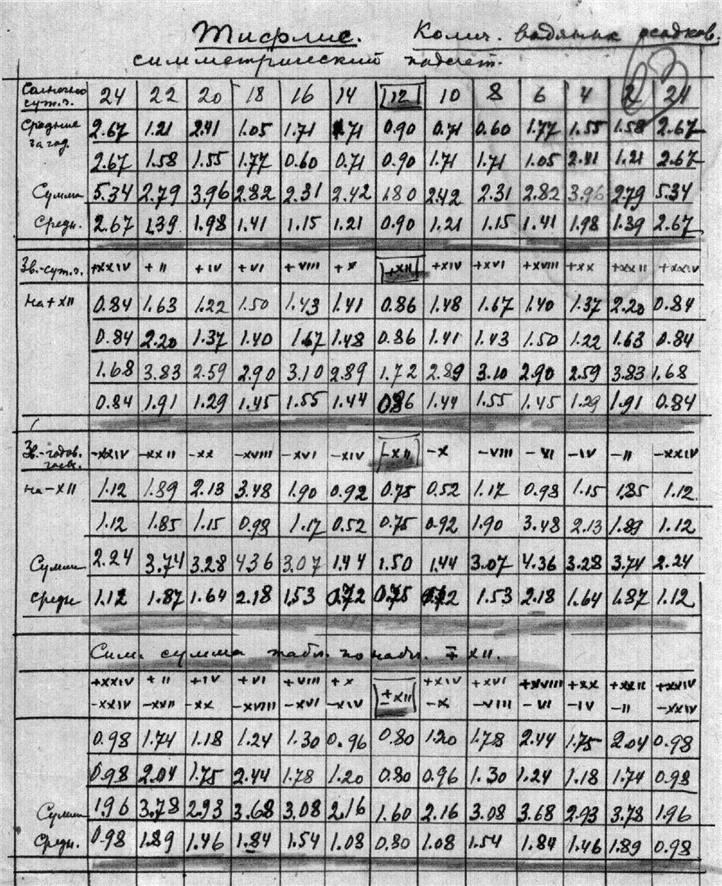 Тифлис. Колич. водяных осадков.
симметрический подсчет.
Солнечно сут. ч. 24 22 20 18 16 14 12 10 8 6 4 2 24
Средние за год. 2.67 1.21 2.41 1.05 1.71 1.71 0.90 0.71 0.60 1.77 1.55 1.58 2.67
2.67 1.58 1.55 1.77 0.60 0.71 0.90 1.71 1.71 1.05 2.41 1.21 2.67
Сумма 5.34 2.79 3.96 2.82 2.31 2.42 1.80 2.42 2.31 2.82 3.96 2.79 5.34
Средн. 2.67 1.39 1.98 1.41 1.15 1.21 0.90 1.21 1.15 1.41 1.98 1.39 2.67
Зв.-сут. ч. +XXIV +II +IV +VI +VIII +X +XII +XIV +XVI +XVIII +XX +XXII +XXIV
на+XII 0.84 1.63 1.22 1.50 1.43 1.41 0.86 1.48 1.67 1.40 1.37 2.20 0.84
0.84 2.20 1.37 1.40 1.67 1.48 0.86 1.41 1.43 1.50 1.22 1.63 0.84
1.68 3.83 2.59 2.90 3.10 2.89 1.72 2.89 3.10 2.90 2.59 3.83 1.68
0.84 1.91 1.29 1.45 1.55 1.44 0.86 1.44 1.55 1.45 1.29 1.91 0.84
Зв.-годов. -XXIV -XXII -XX -XVIII -XVI -XIV -XII -X -VIII -VI -IV -II -XXIV
на-XII 1.12 1.89 2.13 3.48 1.90 0.92 0.75 0.52 1.17 0.98 1.15 1.85 1.12
1.12 1.85 1.15 0.98 1.17 0.52 0.75 0.92 1.90 3.48 2.13 1.89 1.12
Сумма 2.24 3.74 3.28 4.36 3.07 1.44 1.50 1.44 3.07 4.36 3.28 3.74 2.24
Средн 1.12 1.87 1.64 2.18 1.53 0.72 0.75 0.72 1.53 2.18 1.64 1.87 1.12
Сим. сумма табл. по набл. ∓ XII.
+XXIV +II +IV +VI +VIII +X ±XII +XIV +XVI +XVIII +XX +XXII +XXIV
-XXIV -XVII -XX -XVIII -XVI -XIV -X -VIII -VI -IV -II -XXIV
0.98 1.74 1.18 1.24 1.30 0.96 0.80 1.20 1.78 2.44 1.75 2.04 0.98
0.98 2.04 1.75 2.44 1.78 1.20 0.80 0.96 1.30 1.24 1.18 1.74 0.98
Сумма 1.96 3.78 2.93 3.68 3.08 2.16 1.60 2.16 3.08 3.68 2.93 3.78 1.96
Средн. 0.98 1.89 1.46 1.84 1.54 1.08 0.80 1.08 1.54 1.84 1.46 1.89 0.98